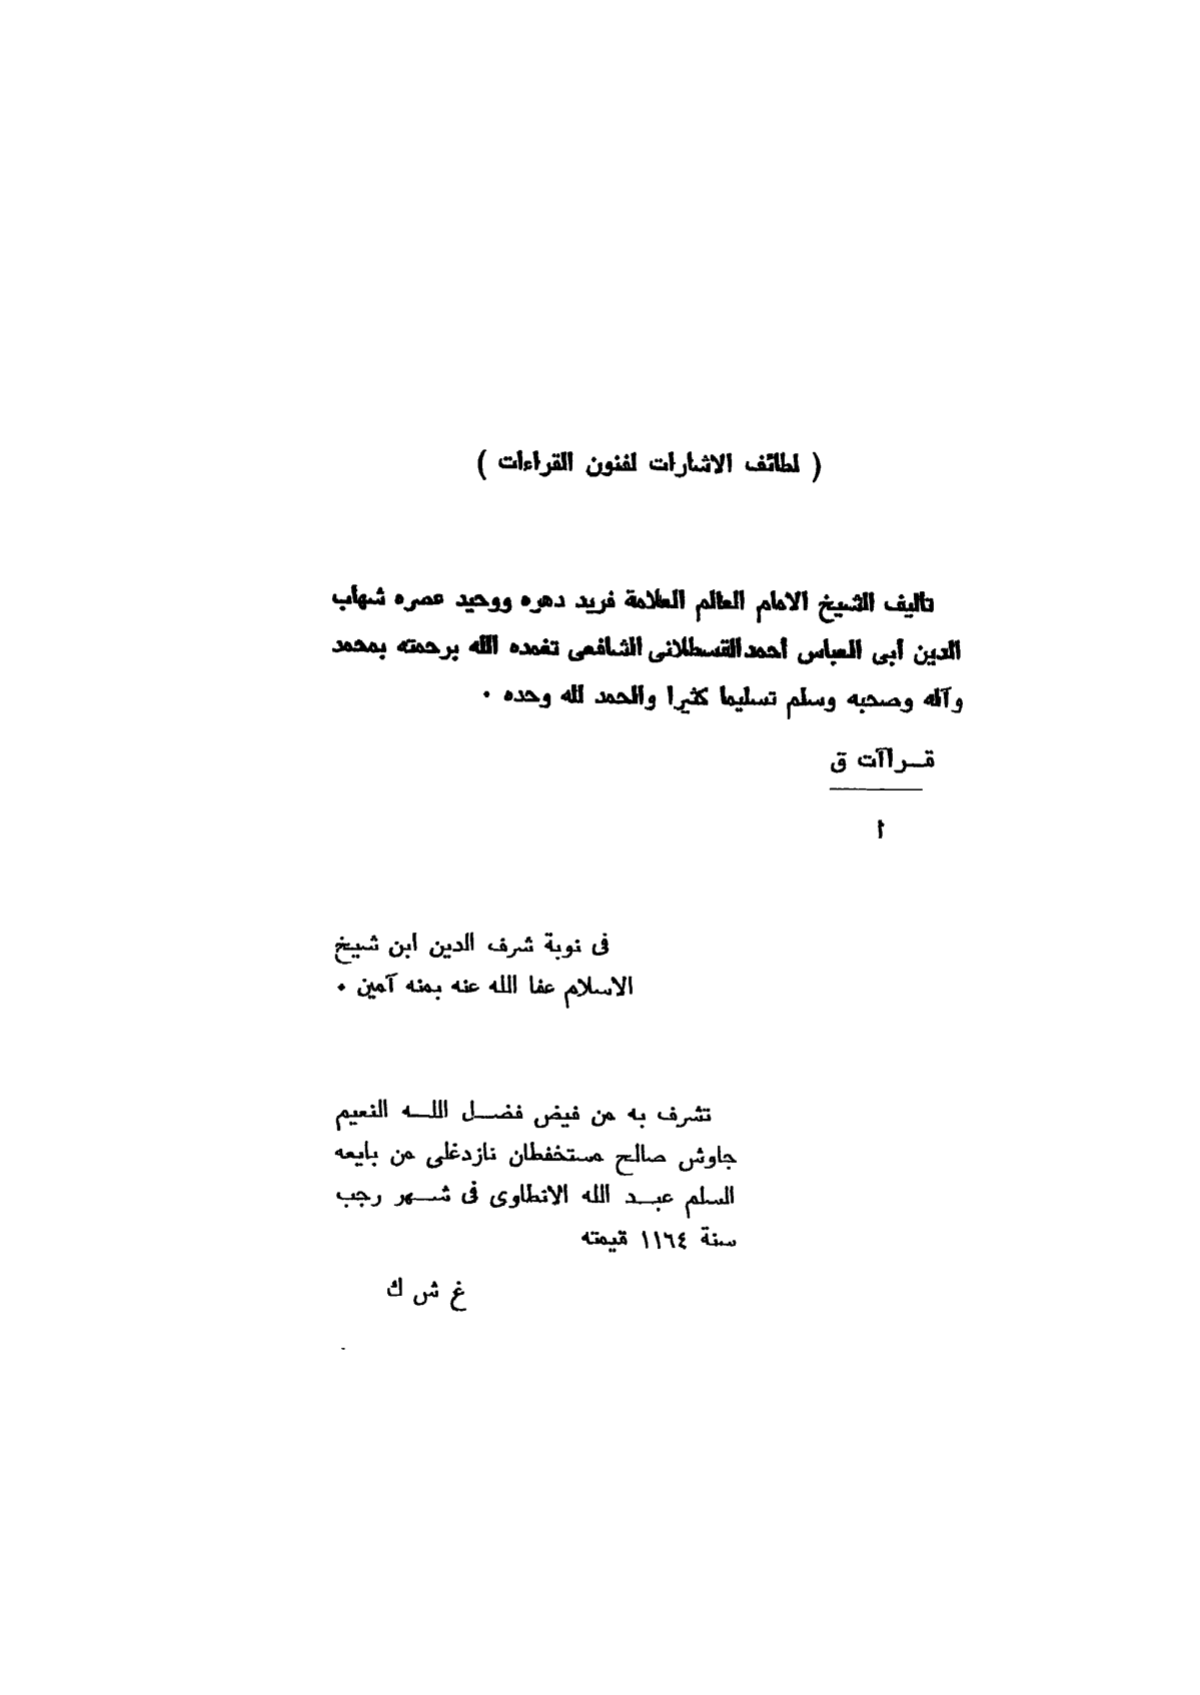 ( لطائف الاشارات لفنون القراءات )
تأليف الشيخ الامام العالم العلامة فريد دهره ووحيد عصره شهاب
الدين أبى العباس أحمد القسطلانى الشافعى تغمده الله برحمته بمحمد
وآله وصحبه وسلم تسليما كثيرا والحمد لله وحده ٠
قـــراآت ق
١
فى نوبة شرف الدين ابن شيخ
الاسلام عفا الله عنه بمنه آمين ٠
تشرف به من فيض فضـــل اللـــه النعيم
جاوش صالح مستخفطان نازدغلى من بايعه
السلم عبـــد الله الانطاوى فى شـــهر رجب
سنة ١١٦٤ قيمته
غ ش ك